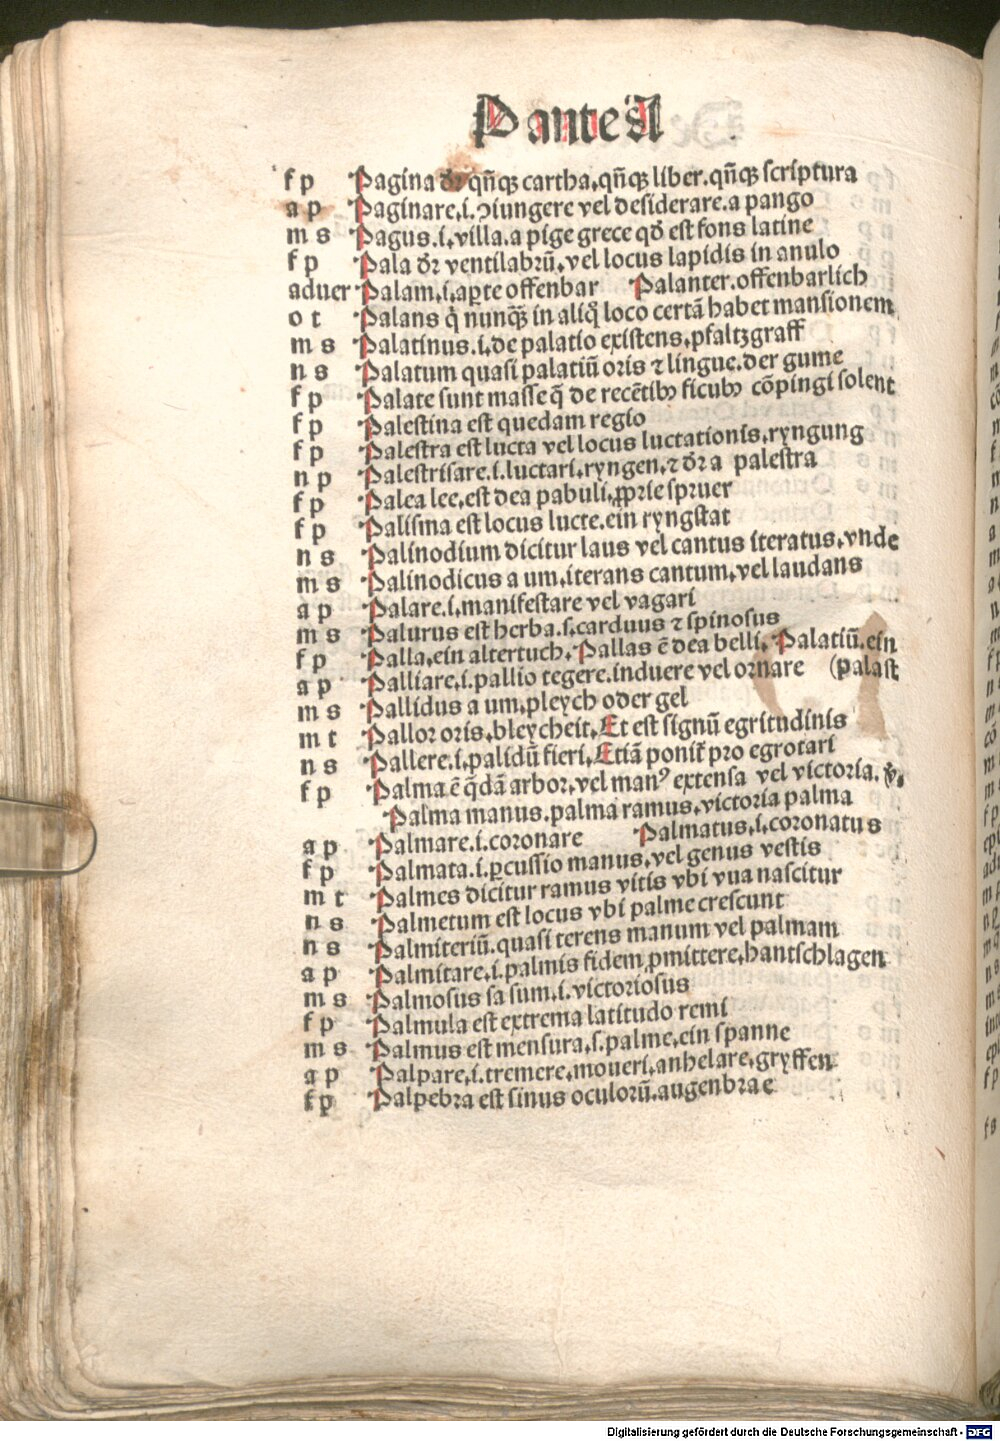 P ante A
f p Pagina dr̄ qn̄qꝫ cartha, qn̄qꝫ liber. qn̄qꝫ scriptura
a p Paginare, i. ↄiungere vel desiderare. a pango
m s Pagus. i, villa. a pige grece qd̓ est fons latine
f p Pala dr̄ ventilabrū, vel locus lapidis in anulo
aduer Palam, i, aꝑte offenbar Palanter. offenbarlich
o t Palans q̇ nunq̄ꝫ in aliq̊ loco certā habet mansionem
m s Palatinus. i, de palatio existens, pfaltzgraff
n s Palatum quasi palatiū oris ⁊ lingue. der gume
f p Palate sunt masse q̄ de recētibꝰ ficubꝰ cōpingi solent
f p Palestina est quedam regio
f p Palestra est lucta vel locus luctationis, ryngung
n p Palestrisare. i. luctari, ryngen, ⁊ dr̄ a palestra
f p Palea lee, est dea pabuli, ꝓprie spruer
f p Palisma est locus lucte. ein ryngstat
n s Palinodium dicitur laus vel cantus iteratus, vnde
m s Palinodicus a um, iterans cantum, vel laudans
a p Palare. i, manifestare vel vagari
m s Palurus est herba. s, carduus ⁊ spinosus
f p Palla, ein altertuch, Pallas ē dea belli, Palatiū. ein
a p Palliare, i. pallio tegere. induere vel ornare (palast
m s Pallidus a um, pleych oder gel
m t Pallor oris, bleycheit, Et est signū egritudinis
n s Pallere. i, palidū fieri, Etiā ponit̄ pro egrotari
f p Palma ē q̄dā arbor, vel manꝰ extensa vel victoria. v̓,
Palma manus. palma ramus, victoria palma
a p Palmare. i. coronare Palmatus, i, coronatus
f p Palmata. i. ꝑcussio manus, vel genus vestis
m t Palmes dicitur ramus vitis vbi vua nascitur
n s Palmetum est locus vbi palme crescunt
n s Palmiteriū. quasi terens manum vel palmam
a p Palmitare, i. palmis fidem ꝓmittere, hantschlagen
m s Palmosus sa sum, i. victoriosus
f p Palmula est extrema latitudo remi
m s Palmus est mensura, s. palme, ein spanne
a p Palpare, i. tremere, moueri, anhelare, gryffen
f p Palpebra est sinus oculorū. augenbrae
Digitalisierung gefördert durch die Deutsche Forschungsgemeinschaft - DFG